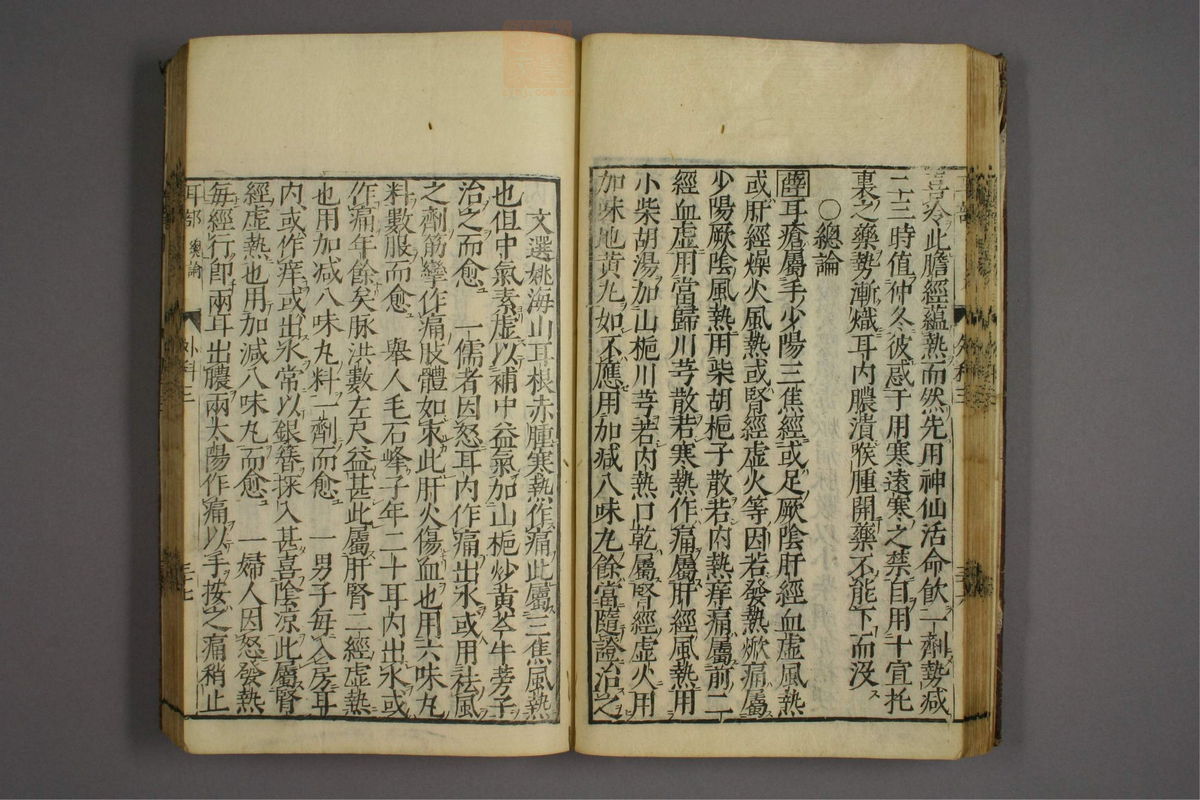 喜冷此膽經蘊熱而然先用神仙活命飲一劑勢減
二三時值仲冬彼惑于用寒遠寒之禁自用十宣托
裏之藥勢漸熾耳內膿潰喉腫開藥不能下而沒
〇總論
薛耳瘡屬手少陽三焦經或足厥陰肝經血虛風熱
或肝經燥火風熱或腎經虛火等因若發熱焮痛屬
少陽厥陰風熱用柴胡梔子散若內熱痒痛屬前二
經血虛用當歸川芎散若寒熱作痛屬肝經風熱用
小柴胡湯加山梔川芎若內熱口乾屬腎經虛火用
加味地黃丸如不應用加減八味丸餘當隨證治之
文選姚海山耳根赤腫寒熱作痛此屬三焦風熱
也但中氣素虛以補中益氣加山梔炒黃芩牛蒡子
治之而愈 一儒者因怒耳內作痛出水或用祛風
之劑筋攣作痛肢體如束此肝火傷血也用六味丸
料數服而愈 舉人毛石峰子年二十耳內出水或
作痛年餘矣脉洪數左尺益甚此屬肝腎二經虛熱
也用加減八味丸料二劑而愈 一男子每入房耳
內或作痒或出水常以銀簪探入甚喜陰涼此屬腎
經虛熱也用加減八味丸而愈 一婦人因怒發熱
每經行即兩耳出膿兩太陽作痛以手按之痛稍止
耳部 總論 外科三 三七